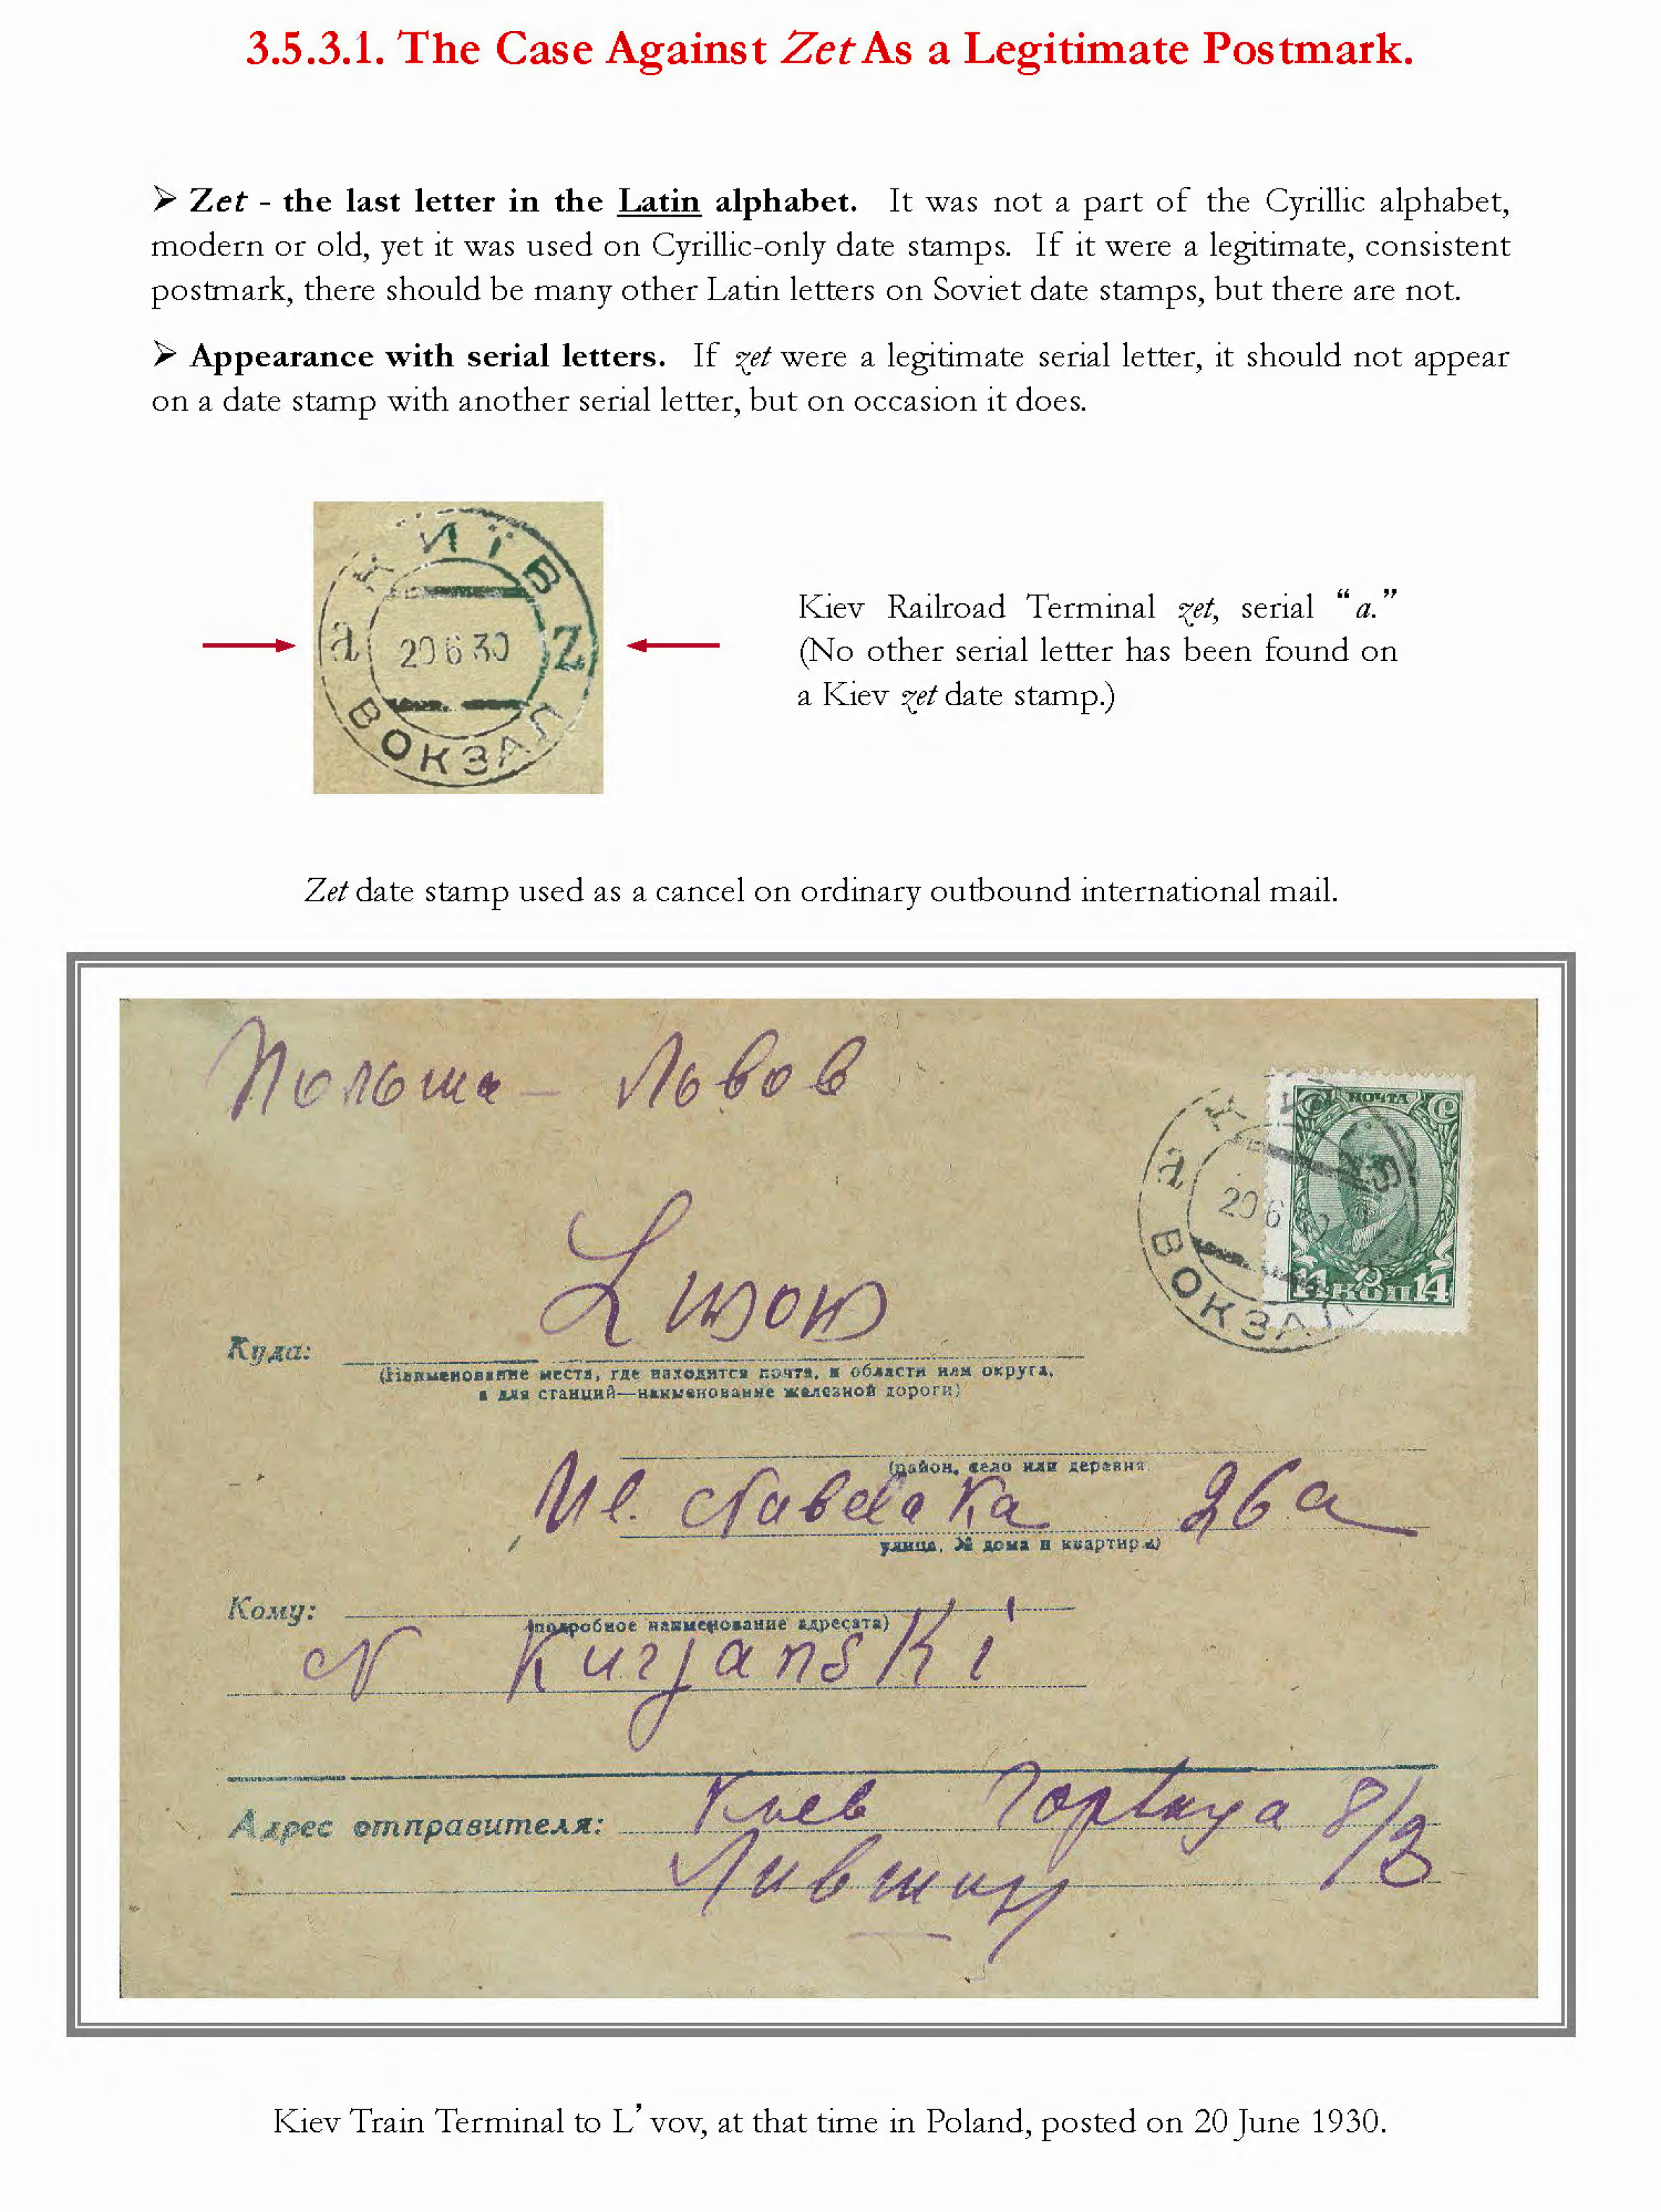 3.5.3.1. The Case Against Zet As a Legitimate Postmark.
➢ Zet - the last letter in the Latin alphabet. It was not a part of the Cyrillic alphabet,
modern or old, yet it was used on Cyrillic-only date stamps. If it were a legitimate, consistent
postmark, there should be many other Latin letters on Soviet date stamps, but there are not.
➢ Appearance with serial letters. If zet were a legitimate serial letter, it should not appear
on a date stamp with another serial letter, but on occasion it does.
КИЇВ
а 20 6 30 Z
ВОКЗАЛ
Kiev Railroad Terminal zet, serial “a.”
(No other serial letter has been found on
a Kiev zet date stamp.)
Zet date stamp used as a cancel on ordinary outbound international mail.
Польша - Львов
ПОЧТА
а 20 6
ВОКЗАЛ
14 КОП 14
Lwow
Куда:
(Наименование места, где находятся почта, и области или округа,
а для станций—наименование железной дороги)
(район, село или деревня
Ul. 26a
улица, № дома и квартиры)
Кому:
(подробное наименование адресата)
N Kurjanski
Адрес отправителя: Киев 8/3
Лившиц
Kiev Train Terminal to L’vov, at that time in Poland, posted on 20 June 1930.